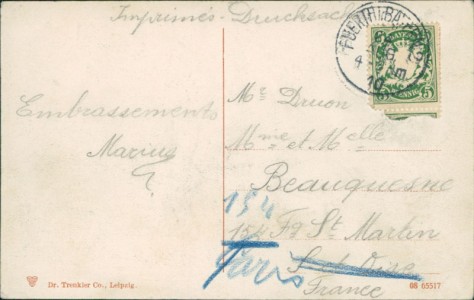 Imprimés - Drucksache
FUERTH (BAY.)
BAYERN
5 PFENNIG 5
Embrassements
Marius
Mr Druon
Mme et Melle
Beauquesne
154
154 Fg St Martin
Paris
S. et Oise
France
Dr. Trenkler Co., Leipzig.
06 65517